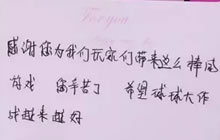 For you
感谢您为我们玩家们带来这么棒的
游戏 您辛苦了 希望球球大作
战越来越好